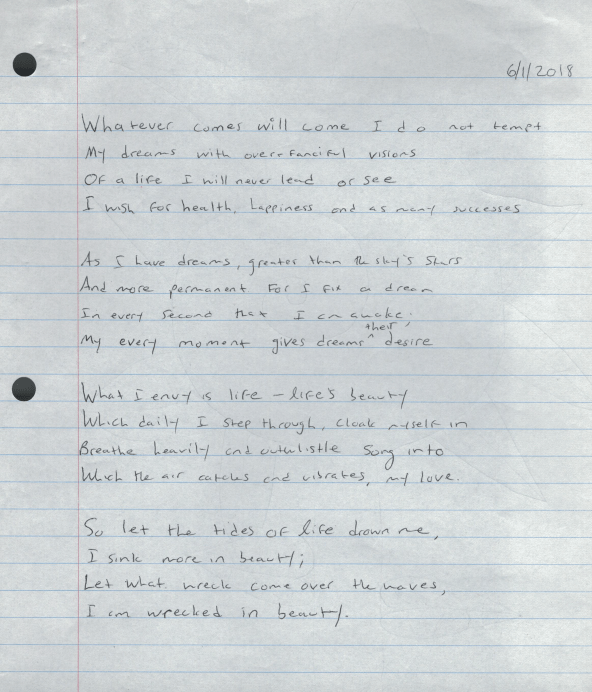 6/1/2018
Whatever comes will come I do not tempt
My dreams with over-fanciful visions
Of a life I will never lead or see
I wish for health, happiness and as many successes
As I have dreams, greater than the sky's stars
And more permanent For I fix a dream
In every second that I am awake;
My every moment gives dreams their desire
What I envy is life – life's beauty
Which daily I step through, cloak myself in
Breathe heavily and outwhistle song into
Which the air catches and vibrates, my love.
So let the tides of life drown me,
I sink more in beauty;
Let what wreck come over the waves,
I am wrecked in beauty.